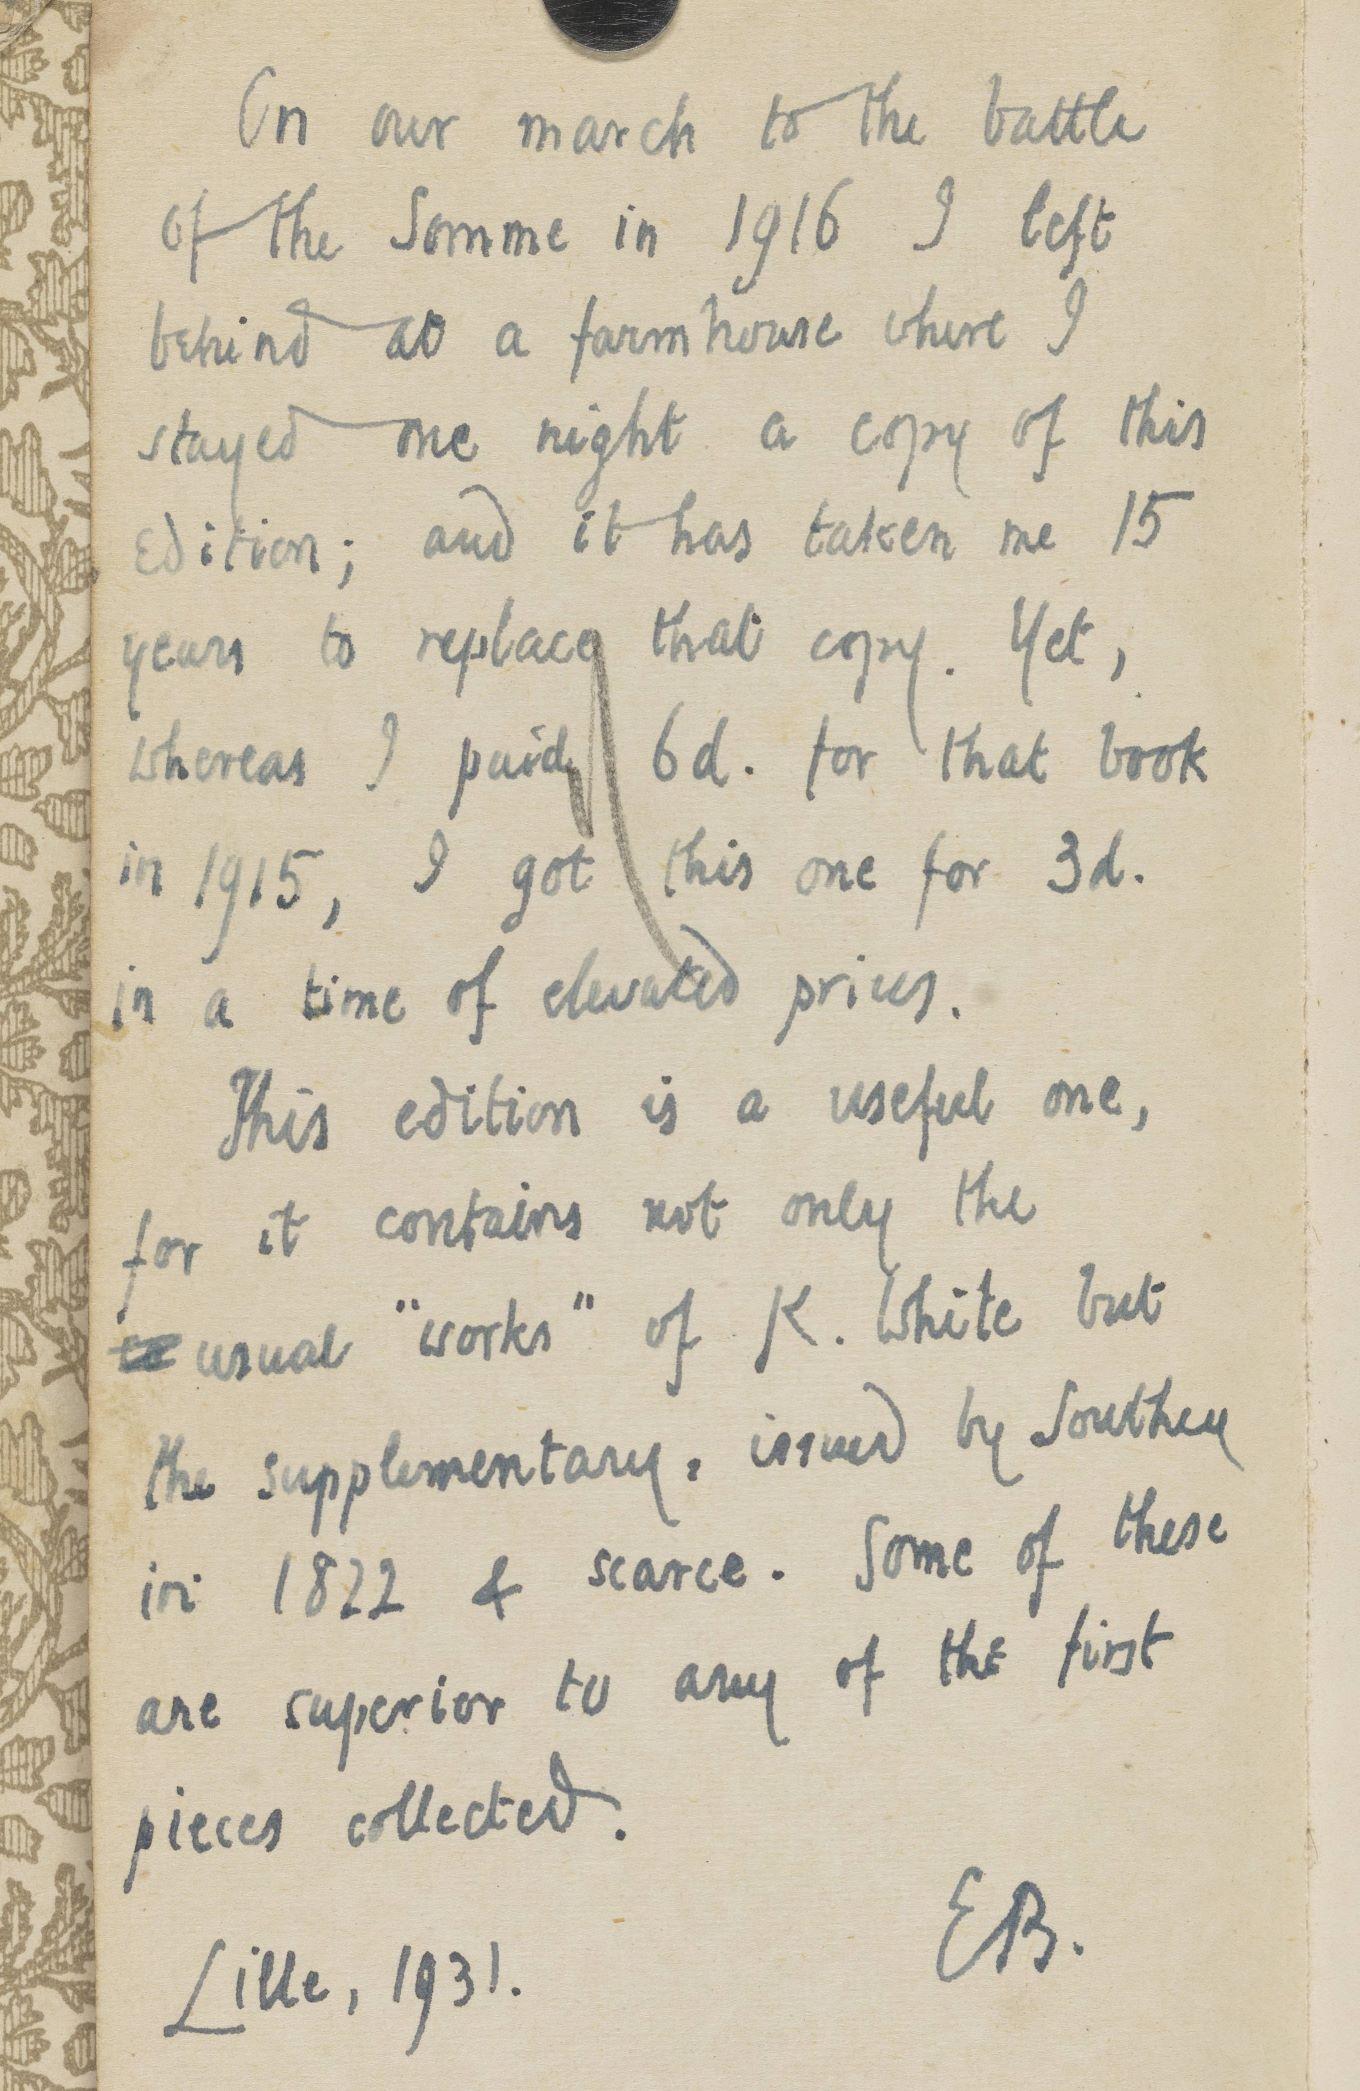 On our march to the battle
of the Somme in 1916 I left
behind at a farmhouse where I
stayed one night a copy of this
edition; and it has taken me 15
years to replace that copy. Yet,
whereas I paid 6d. for that book
in 1915, I got this one for 3d.
in a time of elevated prices.
This edition is a useful one,
for it contains not only the
usual "works" of K. White but
the supplementary, issued by Southey
in 1822 & scarce. Some of these
are superior to any of the first
pieces collected.
EB.
Lille, 1931.